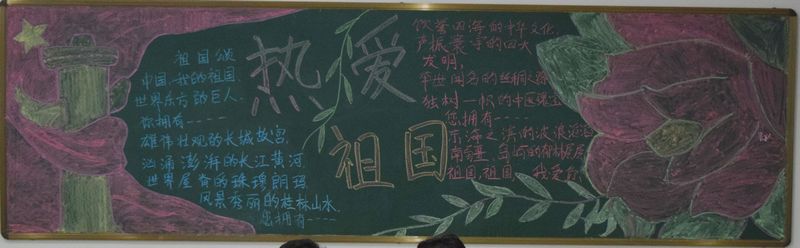 祖国颂
中国,我的祖国
世界东方的巨人.
你拥有----
雄伟壮观的长城故宫.
汹涌澎湃的长江黄河
世界屋脊的珠穆朗玛.
风景秀丽的桂林山水.
您拥有----
热爱
祖国
饮誉四海的中华文化,
声振寰宇的四大
发明,
举世闻名的丝绸之路
独树一帜的中医
您拥有----
东海之滨的波浪滔滔
南疆
祖国,祖国,我爱你